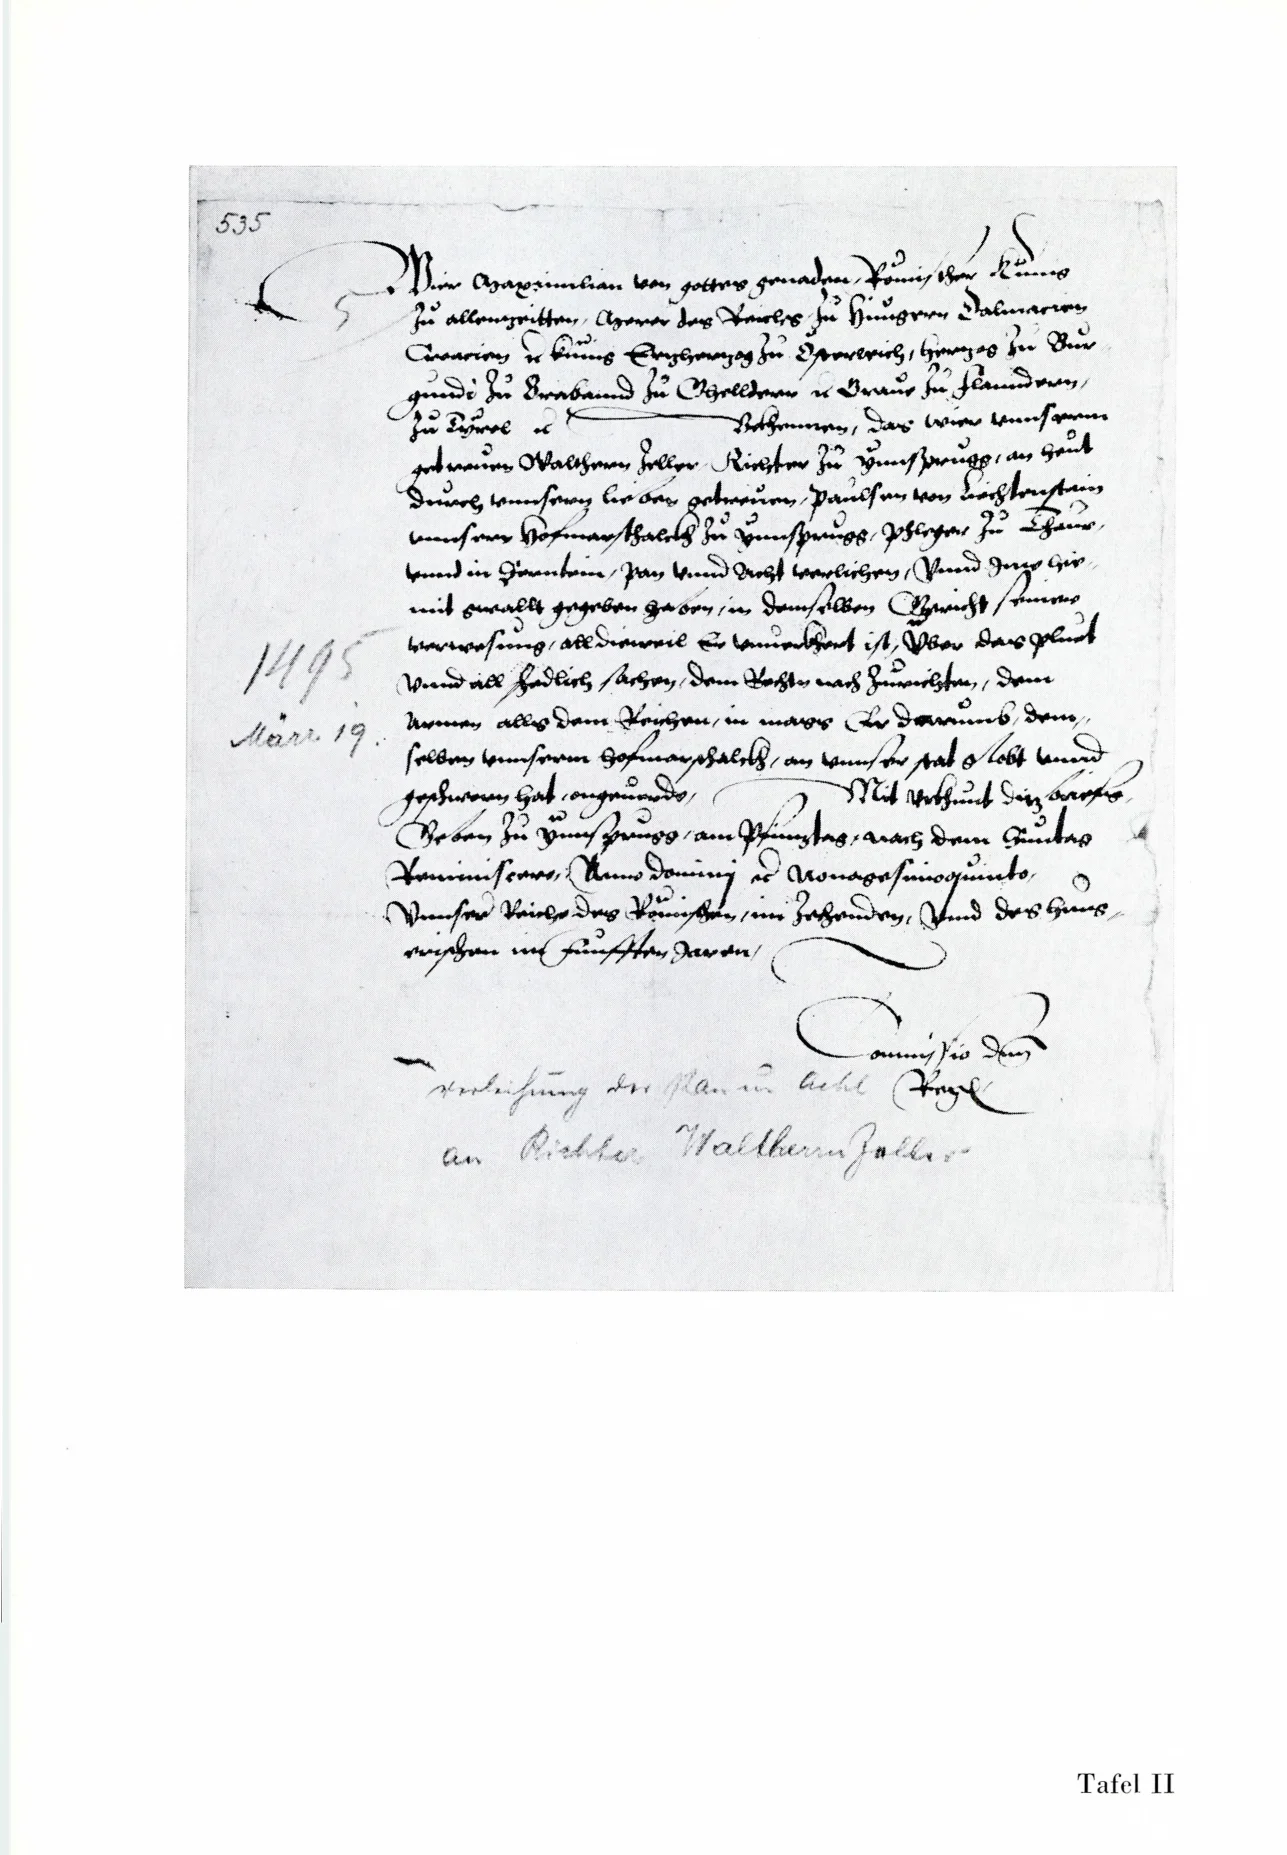 535
5
Wier Maximilian von gottes genaden, Römischer Kunig
zu allenntzeitten, Merer des Reichs, zu Hungern Dalmacien
Croacien etc kunig Ertzhertzog zu Osterreich, hertzog zu Bur-
gundi zu Brabannd zu Ghelldern etc Graue zu Flanndern,
zu Tyrol etc Bekhennen, das wier vnnserm
getreuen Walthern Zeller, Richter zu Ynnsprugg, an heut
durch vnnsern lieben getreuen, Paulsen von Liechtenstain
vnnserr Hofmarschalckh zu Ynnsprugg, Phleger zu Thaur,
vnnd in Ternntein, Pan vnnd Acht verlichen, Vnnd Ime hie-
mit gwallt gegeben haben, in demselben Gericht seiner
verwesung, all dieweil Er vnuerkhert ist, Vber das pluet
vnnd all schedlich sachen, dem Rechtn nach zurichten, dem
Armen alls dem Reichen, in mass Er darumb, dem-
selben vnnserm hofmarschalckh, an vnnser stat globt vnnd
geschworn hat, ongeuerde, Mit Vrkhunt ditz briefs,
Geben zu Ynnsprugg, am Pfinntztag, nach dem Sunntag
Reminiscere, Anno dominj etc Nonagesimoquinto,
Vnnser Reiche des Römischen, im Zehenden, Vnnd des Hung-
erischen im Funfften Jaren,
1495
März 19.
Commissio dnj
Regis
Verleihung der Pan u. Acht
an Richter Walthern Zeller
Tafel II